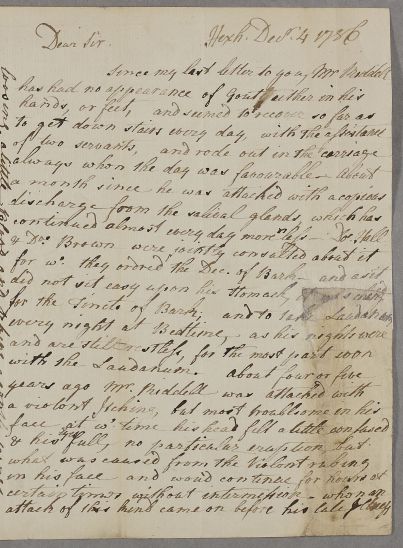 Dear Sir. Hexh. Decr. 4 1786
Since my last letter to you, Mr Riddell
has had no appearance of Gout either in his
hands, or feet, and seemed to recover so far as
to get down stairs every day, with the assistance
of two servants, and rode out in the carriage
always when the day was favourable. About
a month since he was attacked with a copious
discharge from the salival glands, which has
continued almost every day more or less - Dr. Hall
& Dr. Brown were jointly consulted about it
for wh. they ordered the Dec. of Bark, and as it
did not sit easy upon his stomach,
for the Tinct. of Bark; and to take Laudanum
every night at Bedtime, as his nights were
and are still restless, for the most part even
with the Laudanum. about four or five
years ago Mr. Riddell was attacked with
a violent Itching, but most troublesome in his
face at wh. time his head felt a little confused
& his eyes full, no particular eruption, but
what was caused from the violent rubing
in his face and woud continue for hours at
certain times without intermission - when an
attack of this kind came on before his late